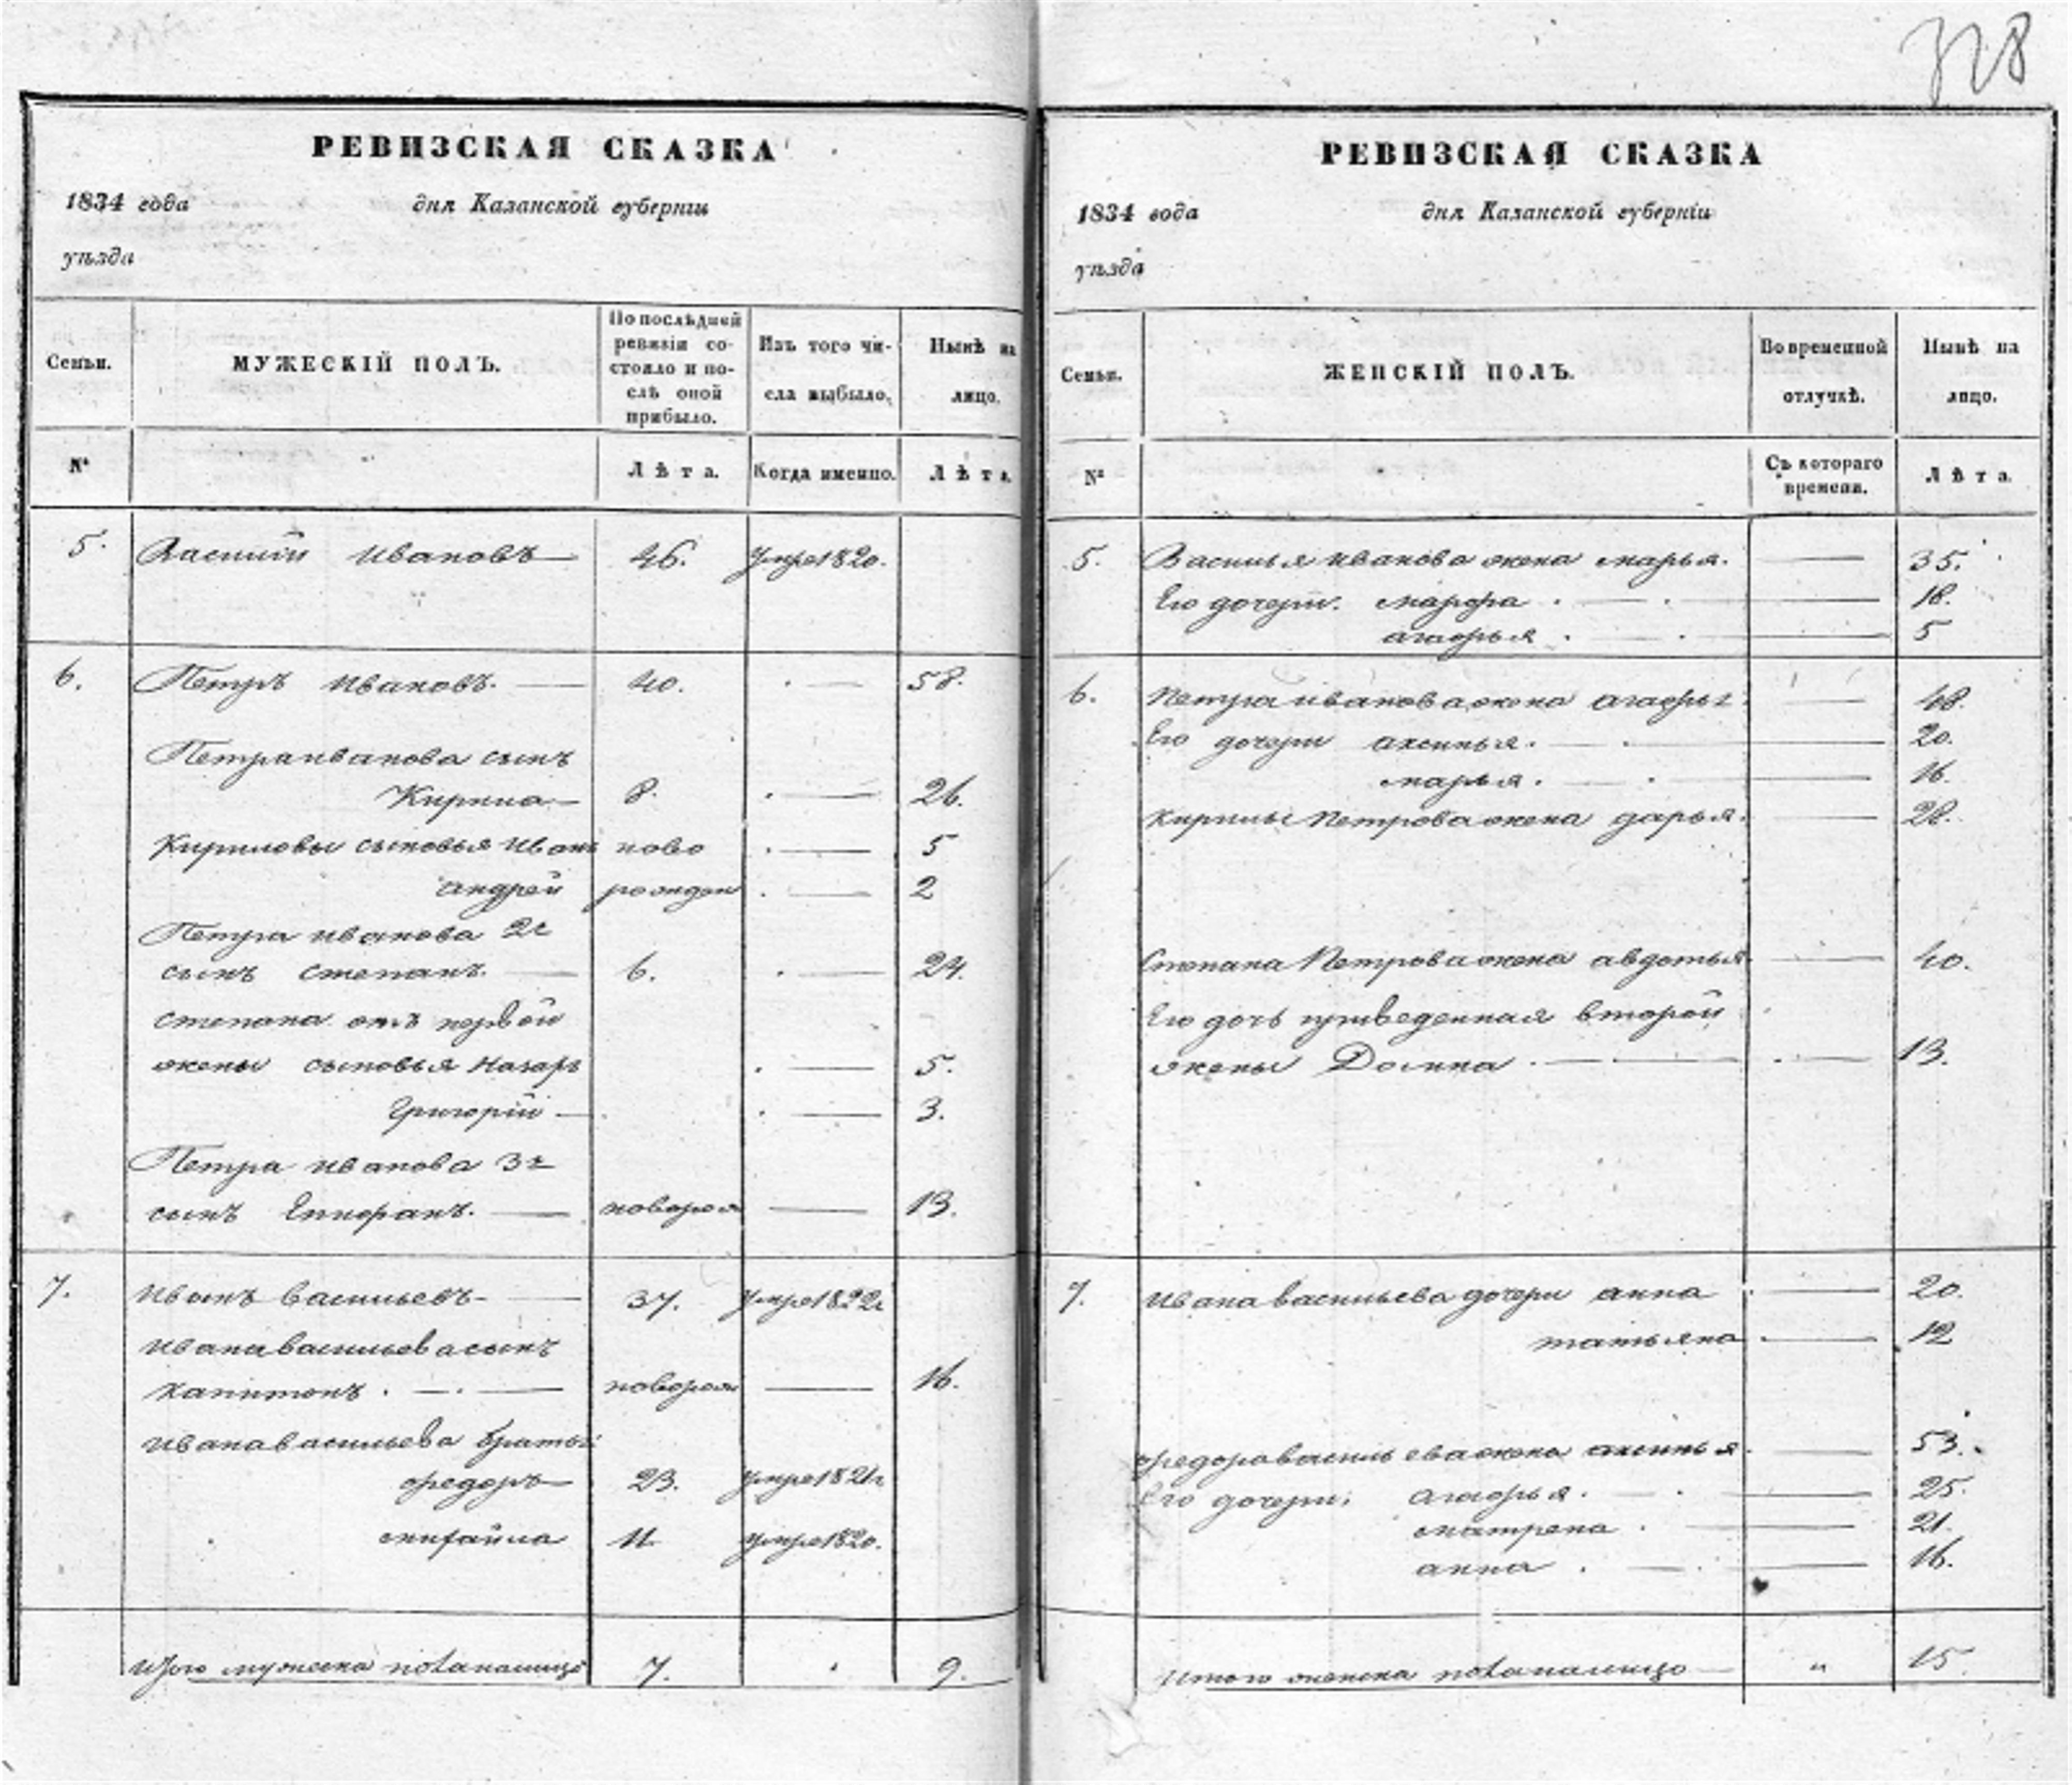 328
РЕВИЗСКАЯ СКАЗКА
1834 года дня Казанской губерніи
уѣзда
Семьи.
МУЖЕСКІЙ ПОЛЪ.
По послѣдней
ревизіи со-
стояло и по-
слѣ оной
прибыло.
Изъ того чи-
сла выбыло.
Нынѣ на
лицо.
№
Лѣта.
Когда именно.
Лѣта
5. Василій Ивановъ 46. Умре 1820.
6. Петръ Ивановъ. 40. 58.
Петра Иванова сынъ
Кирила 8. 26.
Кириловы сыновья Иванъ ново 5
андрей рожден 2
Петра Иванова 2г
сынъ степанъ. 6. 24.
степана отъ первой
жены сыновья Назаръ 5.
Григорій 3.
Петра Иванова 3г
сынъ 13.
7. Иванъ Васильевъ 37. Умре 1822г
Ивана Васильева сынъ
капитонъ 16.
Ивана Васильева братья
федоръ 23. Умре 1821г
михайла 11 Умре 1820.
Итого мужеска пола налицо 7. 9.
РЕВИЗСКАЯ СКАЗКА
1834 года дня Казанской губерніи
уѣзда
Семьи.
ЖЕНСКІЙ ПОЛЪ.
Во временной
отлучкѣ.
Нынѣ на
лицо.
№
Съ котораго
времени.
Лѣта.
5. Василья Иванова жена марья. 35.
Его дочери. марфа 18.
агафья 5
6. Петра Иванова жена агафья 48.
Его дочери аксинья. 20.
марья. 16.
Кирилы Петрова жена дарья. 28.
Степана Петрова жена авдотья 40.
Его дочь приведенная второй
жены Домна 13.
7. Ивана Васильева дочери анна 20.
татьяна 12
федора Васильева жена аксинья 53.
Его дочери: агафья. 25.
матрена 21.
анна 16.
Итого женска пола налицо " 15